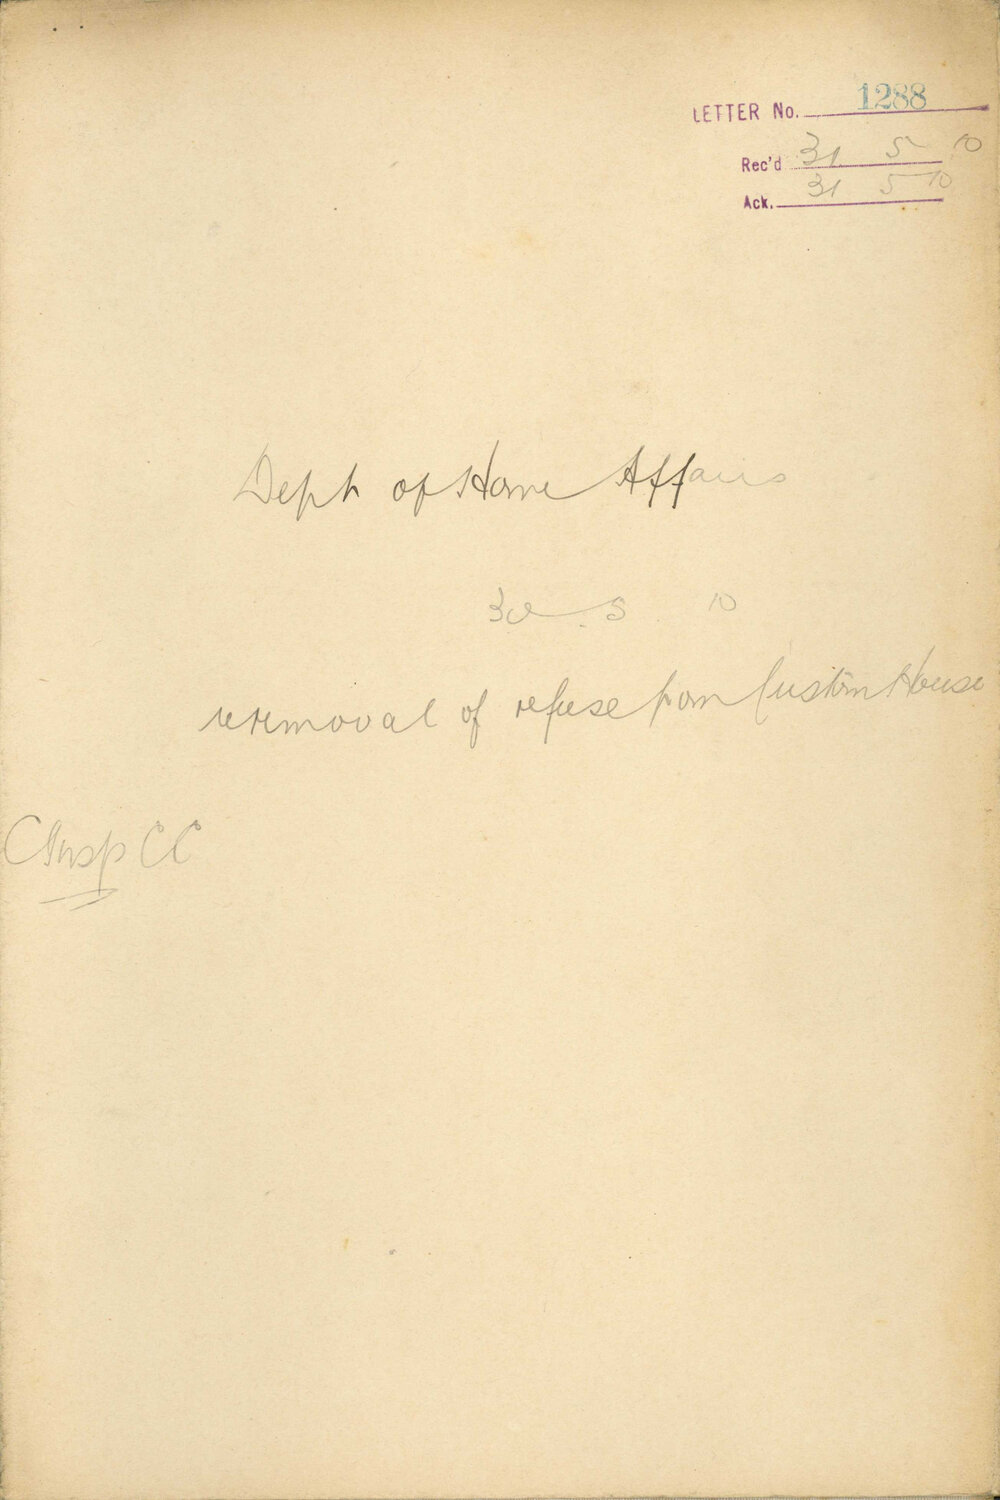 LETTER No. 1288
Rec'd 31 5 10
Ack. 31 5 10
Dept of Home Affairs
30 5 10
re removal of refuse from Custom House
C Insp CC